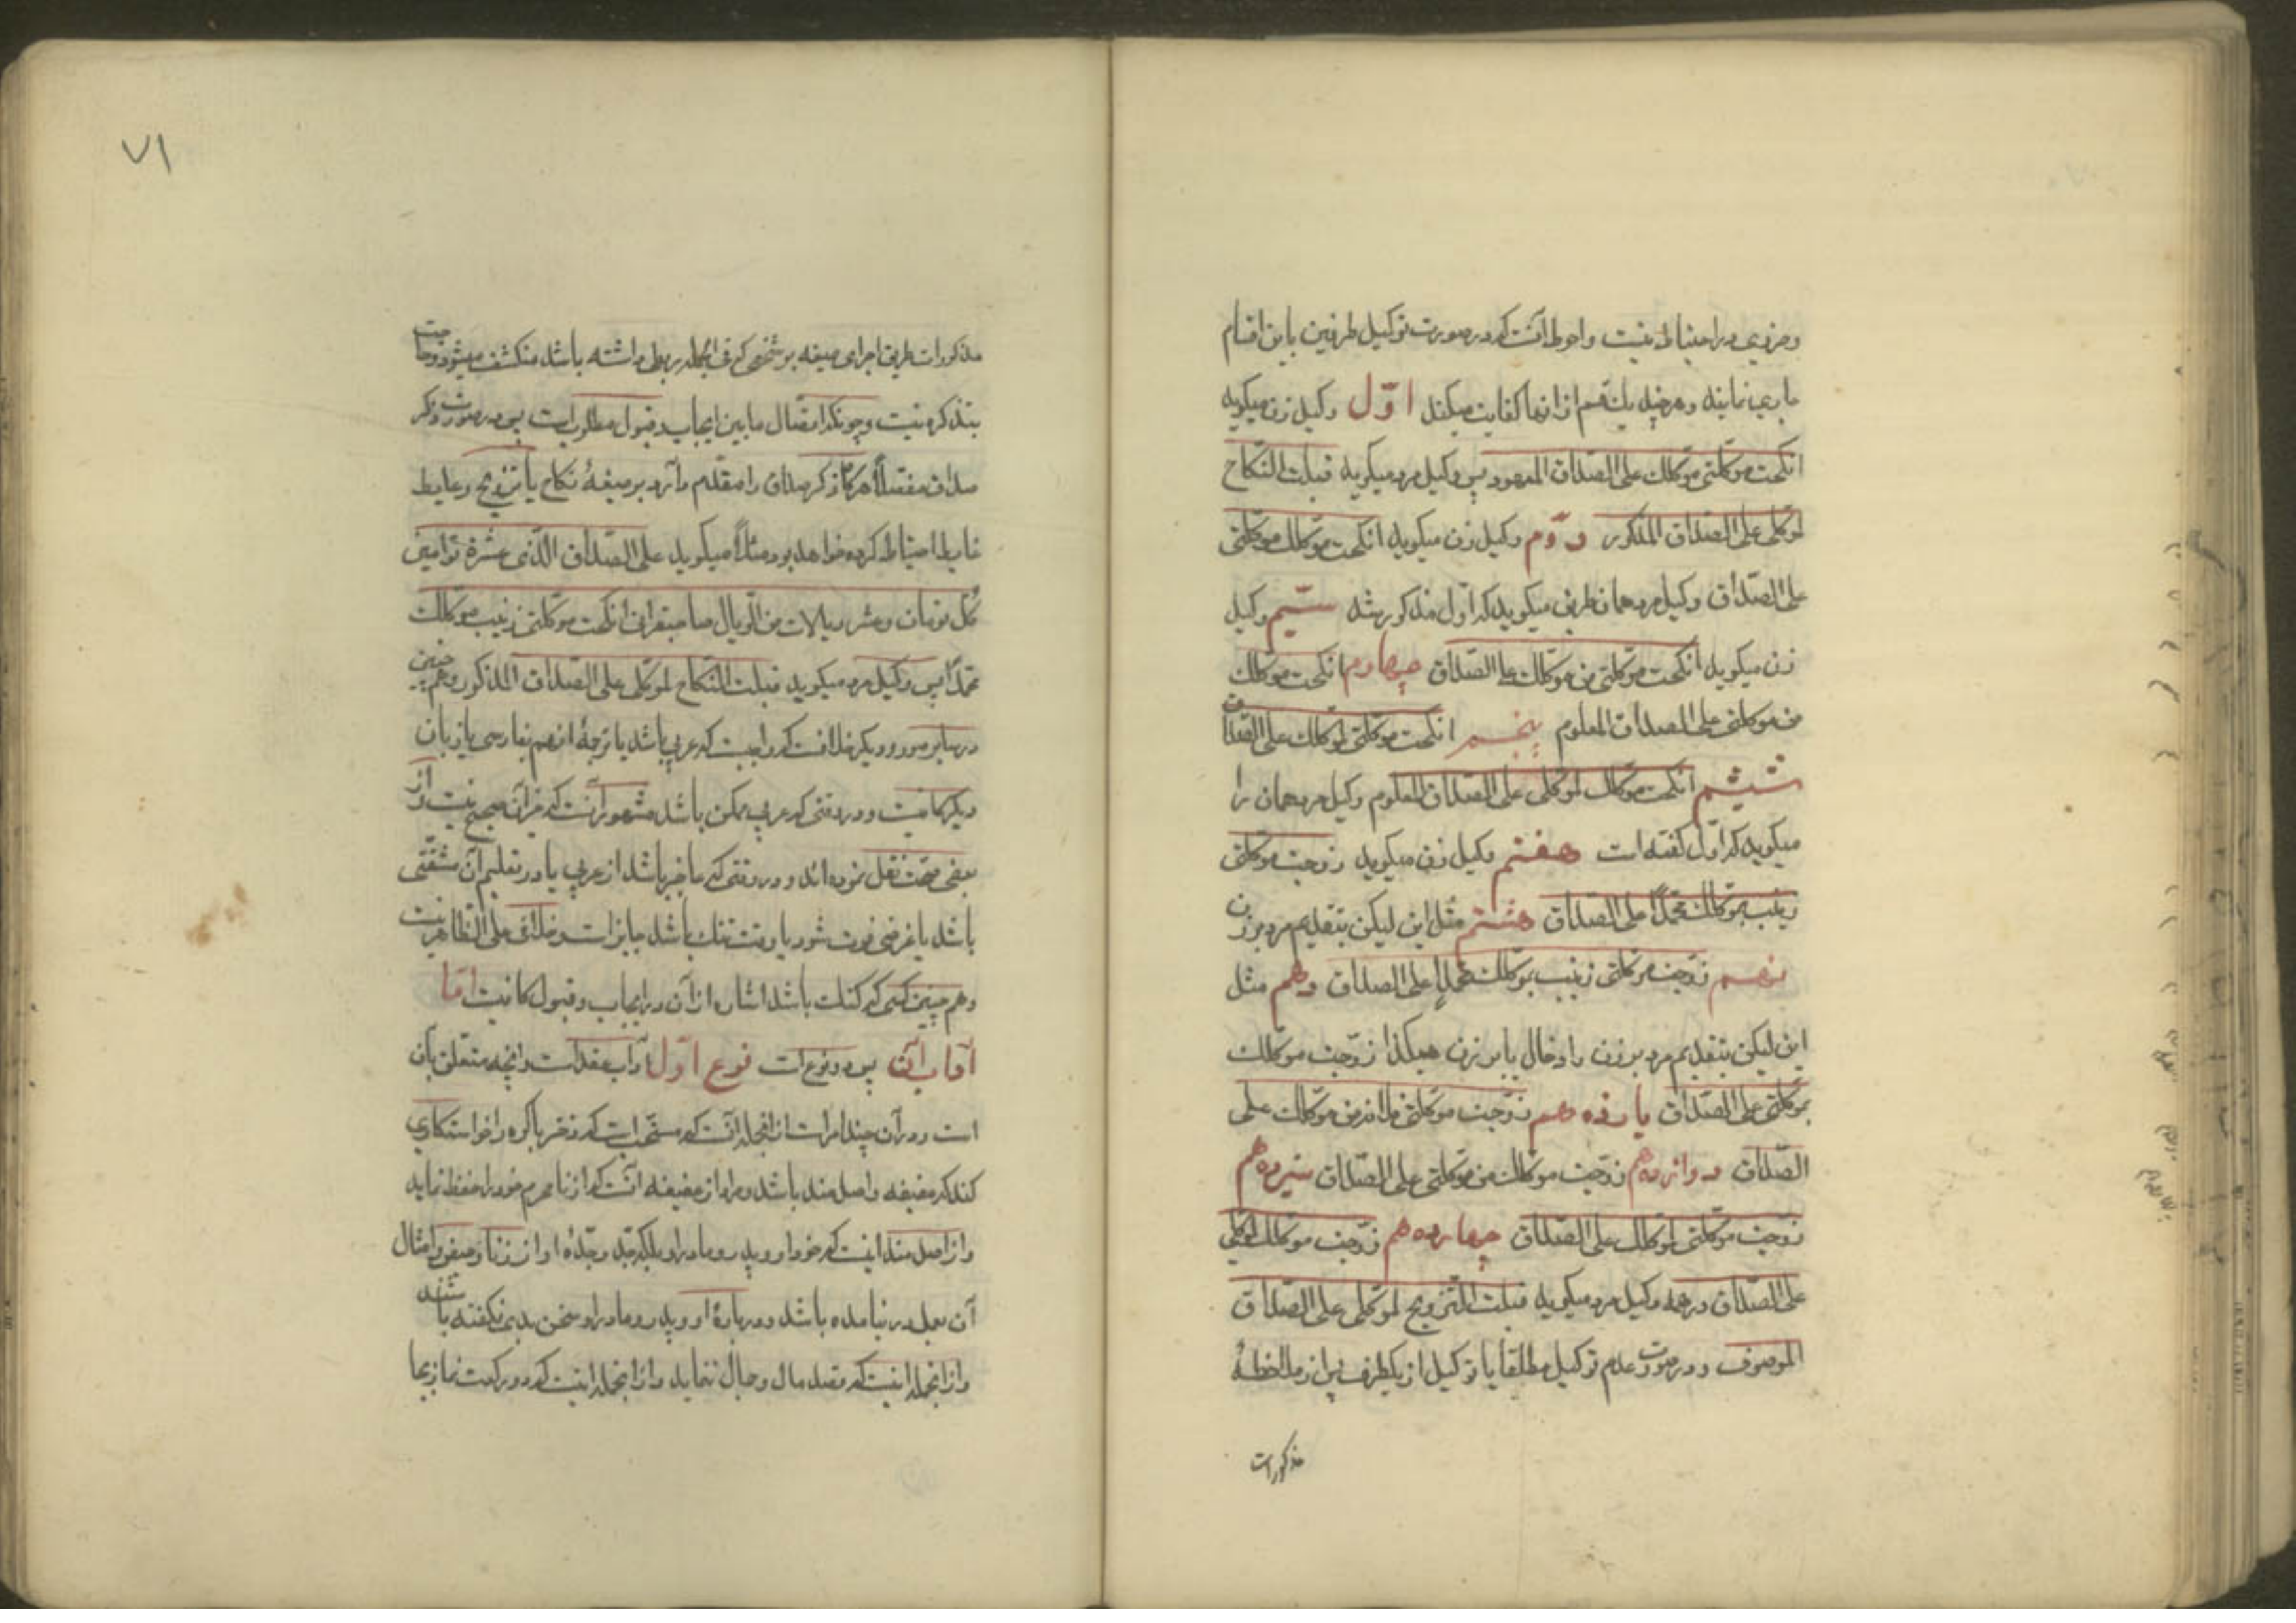 و ضروری در احتیاط نیست و احوط آنست که در صورت توکیل طرفین باین اقسام
جاری نمایند و هر چند یک قسم از انها کفایت میکند اوّل وکیل زن میگوید
انکحت موکّلتی موکّلک علی الصّداق المعهود پس وکیل مرد میگوید قبلت النّکاح
لموکّلی علی الصّداق المذکور دوّم وکیل زن میگوید انکحت موکّلک موکّلتی
علی الصّداق وکیل مرد همان طریق میگوید که اوّل مذکور شد سیّم وکیل
زن میگوید انکحت موکّلتی من موکّلک علی الصّداق چهارم انکحت موکّلک
من موکلتی علی الصداق المعلوم پنجم انکحت موکّلتی لموکّلک علی الصّداق
ششم انکحت موکّلک لموکّلتی علی الصّداق المعلوم وکیل مرد همان را
میگوید که اوّل گفته است هفتم وکیل زن میگوید زوجت موکّلتی
زینب بموکّلک محمّداً علی الصداق هشتم مثل این لیکن بتقدیم مرد بر زن
نهم زوّجت موکّلتی زینب بموکّلک محمّد علی الصداق دهم مثل
این لیکن بتقدیم مرد بر زن و ادخال با بر زن هیکذا زوّجت موکّلک
بموکّلتی علی الصّداق یازدهم زوّجت موکّلتی من موکّلک علی
الصّداق دوازدهم زوّجت موکّلک من موکّلتی علی الصّداق سیزدهم
زوّجت موکّلتی لموکّلک علی الصّداق چهاردهم زوّجت موکّلک لموکّلتی
علی الصّداق در همه وکیل مرد میگوید قبلت التّزویج لموکّلی علی الصّداق
الموصوف و در صورت عدم توکیل مطلقا یا توکیل از یکطرف پس از ملاحظهٔ
مذکورات
۷۱
مذکورات طریق اجرای صیغه بر شخصی که فی الجمله ربطی داشته باشد منکشف میشود و حاجت
بتذکره نیست و چونکه اتصال مابین ایجاب و قبول مطلوب است پس در صورت ذکر
صداق مفصّلاً هرگاه ذکر صداق را مقدّم دارد بر صیغهٔ نکاح یا تزویج
غایط احتیاط کرده خواهد بود مثلاً میگوید علی الصّداق الّذی عشرة توامین
کلّ تومان عشر ریالات من الرّیال صاحبقران انکحت موکّلتی زینب موکّلک
محمّداً پس وکیل مرد میگوید قبلت النّکاح لموکّلی علی الصّداق المذکور و هم چنین
در سایر صور و دیگر خلافست که واجبست که عربی باشد یا ترجمهٔ انهم بفارسی یا زبان
دیگر کافیست و در وقتی که عربی ممکن باشد مشهور آنست که غیر آن صحیح نیست و از
بعضی صحّت نقل نموده‌اند و در وقتی که عاجز باشد از عربی یا در تعلیم آن مشقّتی
باشد یا غرضی فوت شود یا وقت تنک باشد جایز است و خلافی علی الظّاهر نیست
و هم چنین کسی که گنک باشد اشاره از آن در ایجاب و قبول کافیست امّا
آداب آن پس دو نوع است نوع اوّل آداب عقد است و انچه متعلّق بآن
است و در آن چند امر است از انجمله آنست که مستحبّ است که دختر باکره را خواستکاری
کند که عفیفه و اصل مند باشد و مراد از عفیفه آنست که از نامحرم خود را حفظ نماید
و از اصل مند اینست که خود او و پدر و مادر او بلکه جدّ و جدّهٔ او از زنا و حیض و امثال
آن بعمل در نیامده باشد و در بارهٔ او و پدر و مادر او سخن بدی نگفته باشند
و از انجمله اینست که قصد مال و جمال ننماید و از انجمله اینست که دو رکعت نماز بجا